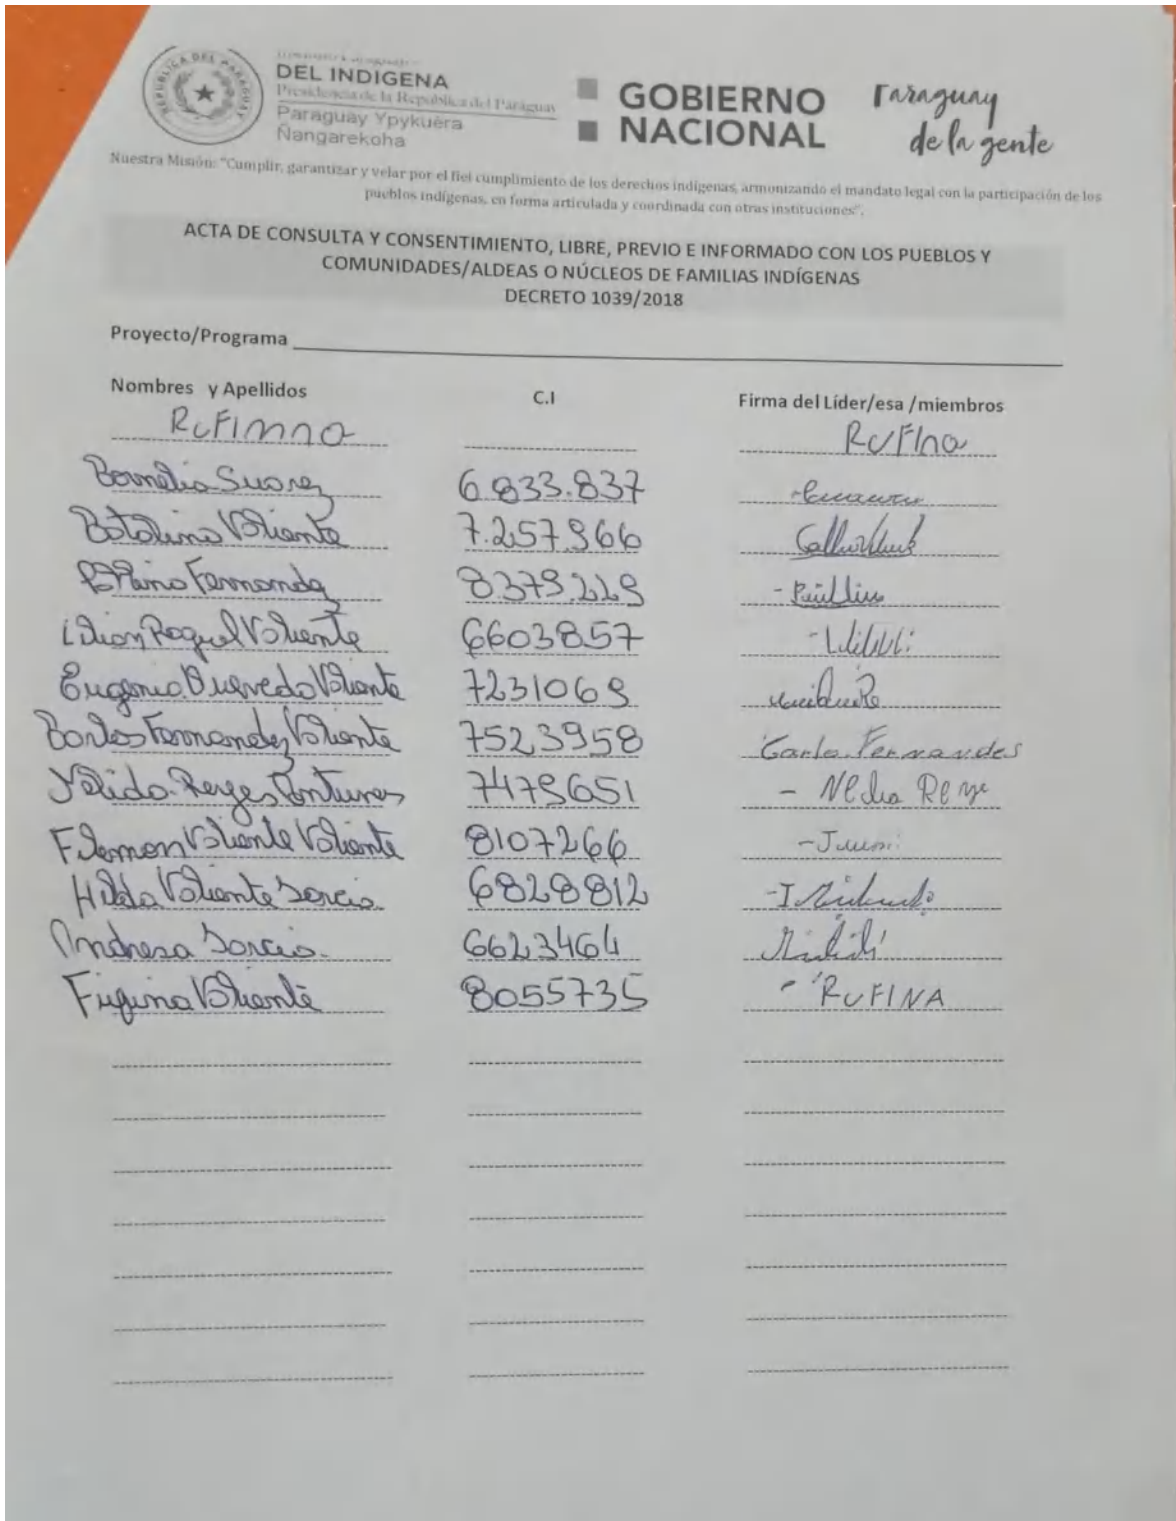 REPUBLICA DEL PARAGUAY
DEL INDIGENA
Presidencia de la República del Paraguay
Paraguay Ypykuéra
Ñangarekoha
GOBIERNO
NACIONAL
Paraguay
de la gente
Nuestra Misión: "Cumplir, garantizar y velar por el fiel cumplimiento de los derechos indígenas, armonizando el mandato legal con la participación de los
pueblos indígenas, en forma articulada y coordinada con otras instituciones".
ACTA DE CONSULTA Y CONSENTIMIENTO, LIBRE, PREVIO E INFORMADO CON LOS PUEBLOS Y
COMUNIDADES/ALDEAS O NÚCLEOS DE FAMILIAS INDÍGENAS
DECRETO 1039/2018
Proyecto/Programa
Nombres y Apellidos C.I Firma del Líder/esa /miembros
RUFINNA RUFINA
Cornelia Suarez 6.833.837
Catalino Valiente 7.257.966
Fernandez 8.379.229
Lilian Raquel Valiente 6603857
Eugenia Quevedo Valiente 7231069
Carlos Fernandez Valiente 7523958 Carlo Fernandes
Nelida Reyes Contreras 7479651 - Nedia Reye
Filemon Valiente Valiente 8107266
Hilda Valiente Garcia 6828812
Andresa Garcia 6623464
Fugina Valiente 8055735 RUFINA